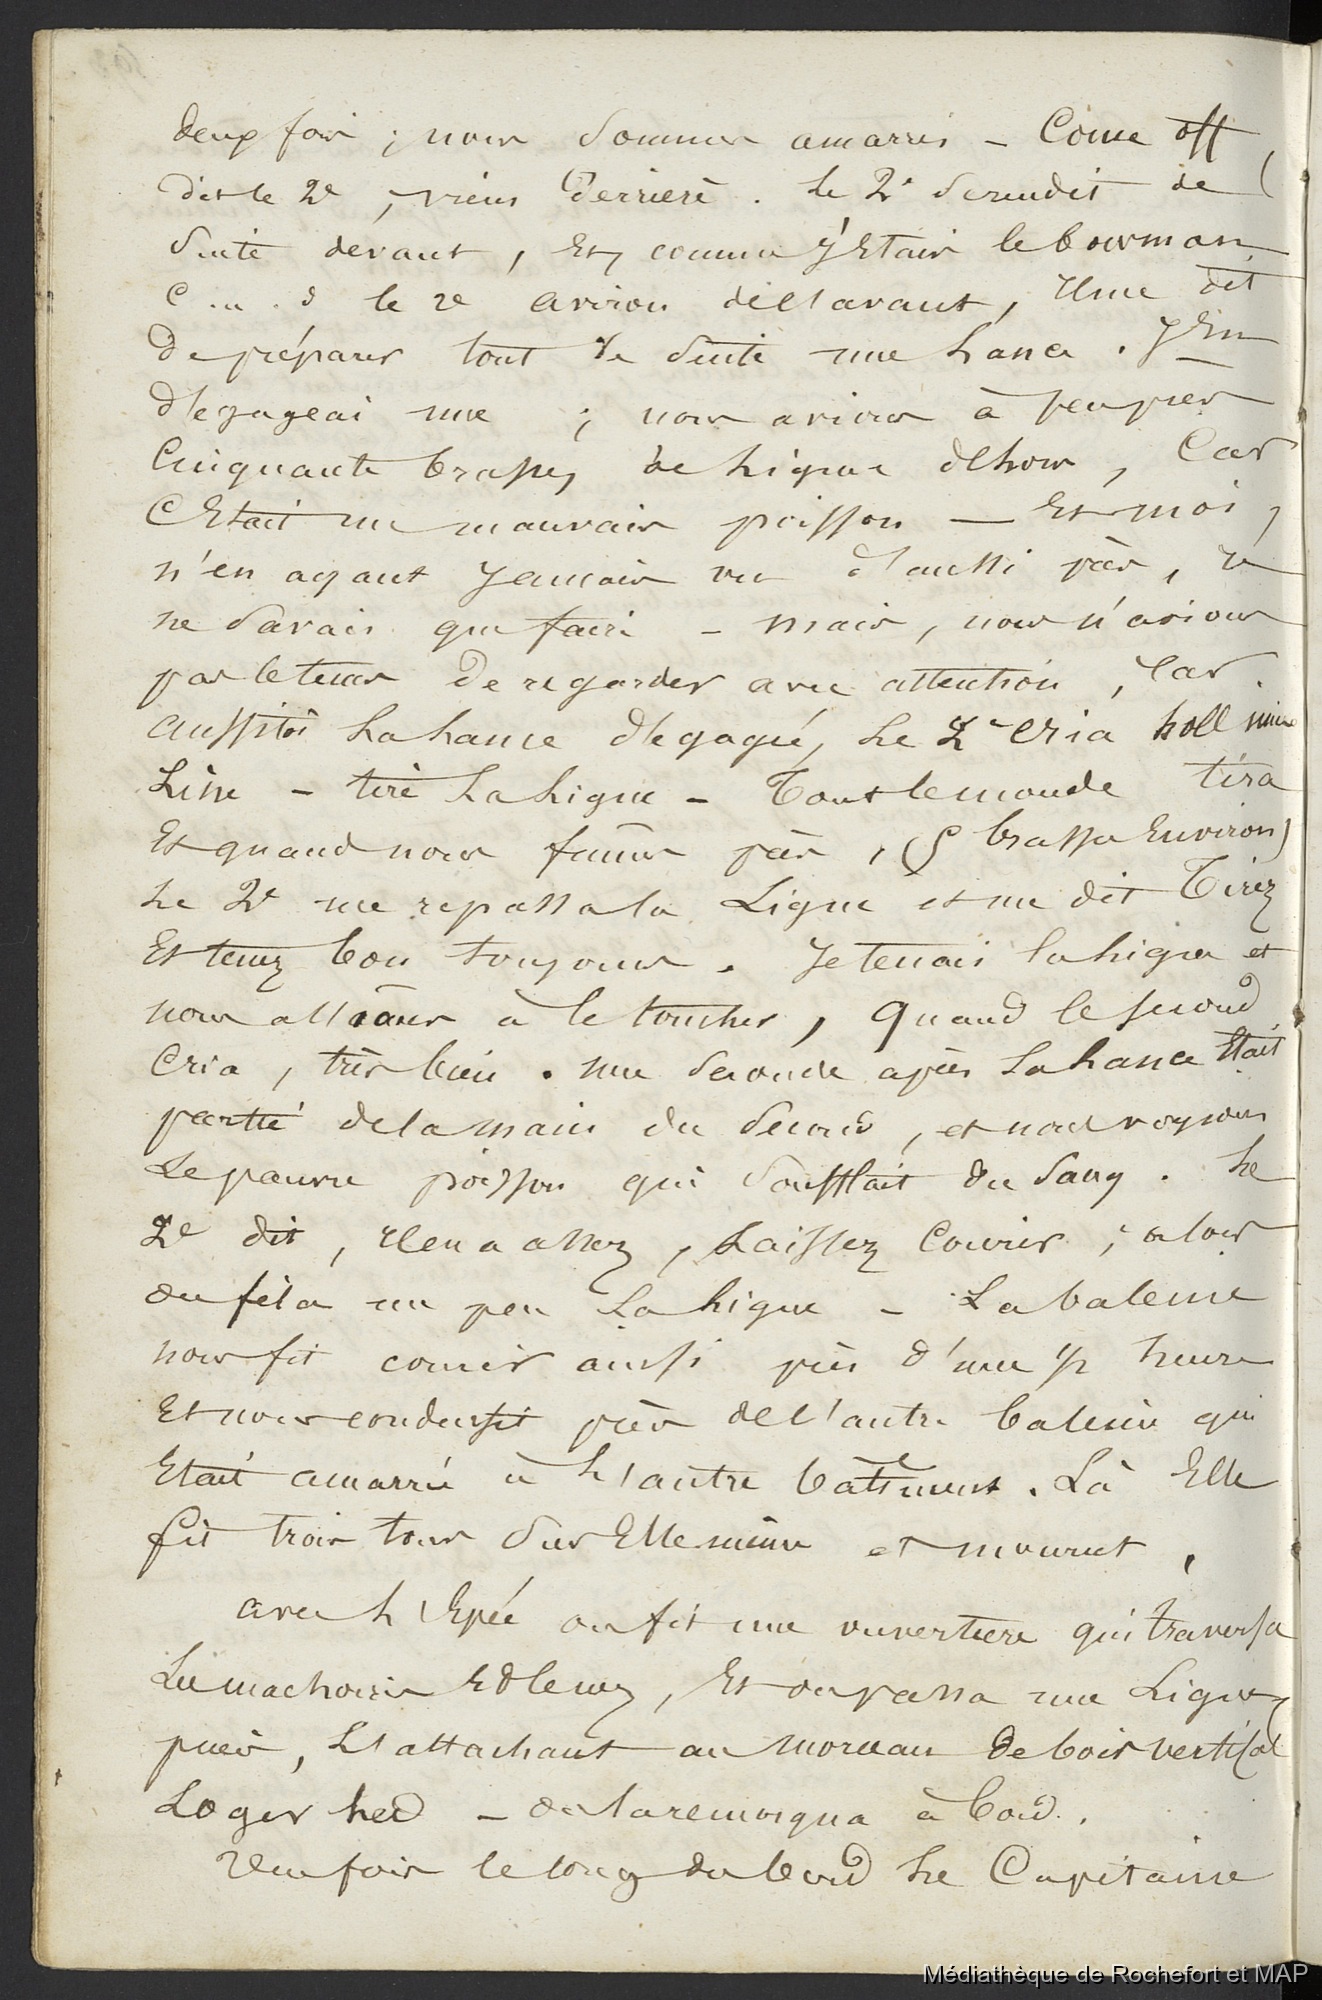 deux fois ; nous sommes amarrés - Come off
dit le 2e, viens derrière. Le 2e descendit de
suite devant, Et, comme j'Etais le bowman
C.a.d le 2e aviron de l'avant, Il me dit
De préparer tout de suite une Lance. J'En
dégageai une ; nous avions à peu près
Cinquante brasses de Ligne dehors, Car
C'Etait un mauvais poisson — Et moi,
n'en ayant jamais vu d'aussi près, je
ne savais que faire - mais, nous n'avions
pas le temps De regarder avec attention, Car
aussitôt La Lance dégagée, Le 2e cria holl
Line - tire La Ligne - Tout le monde tira
Et quand nous fûmes près, (5 brasses Environ)
Le 2e me repassa la Ligne et me dit Tirez
Et tenez bon toujours. Je tenais la Ligne et
nous allions à le toucher, quand le second
Cria, très bien. une seconde après La Lance Etait
partie de la main du second, et nous voyions
Le pauvre poisson qui soufflait du sang. Le
2e dit, Il en a assez, Laissez Courir ; alors
on fila un peu La Ligne - La baleine
nous fit courir ainsi près d'une 1/2 heure
Et nous conduisit près de l'autre baleine qui
Etait amarrée à L'autre bâtiment. Là Elle
fit trois tours sur Elle même et mourut,
avec L'Epée on fit une ouverture qui traversa
Les machoires Et le nez, Et on passa une Ligne,
puis, L'attachant au morceau de bois vertical
Loger hed - on la remorqua à bord.
Une fois le long du bord Le Capitaine
Médiathèque de Rochefort et MAP